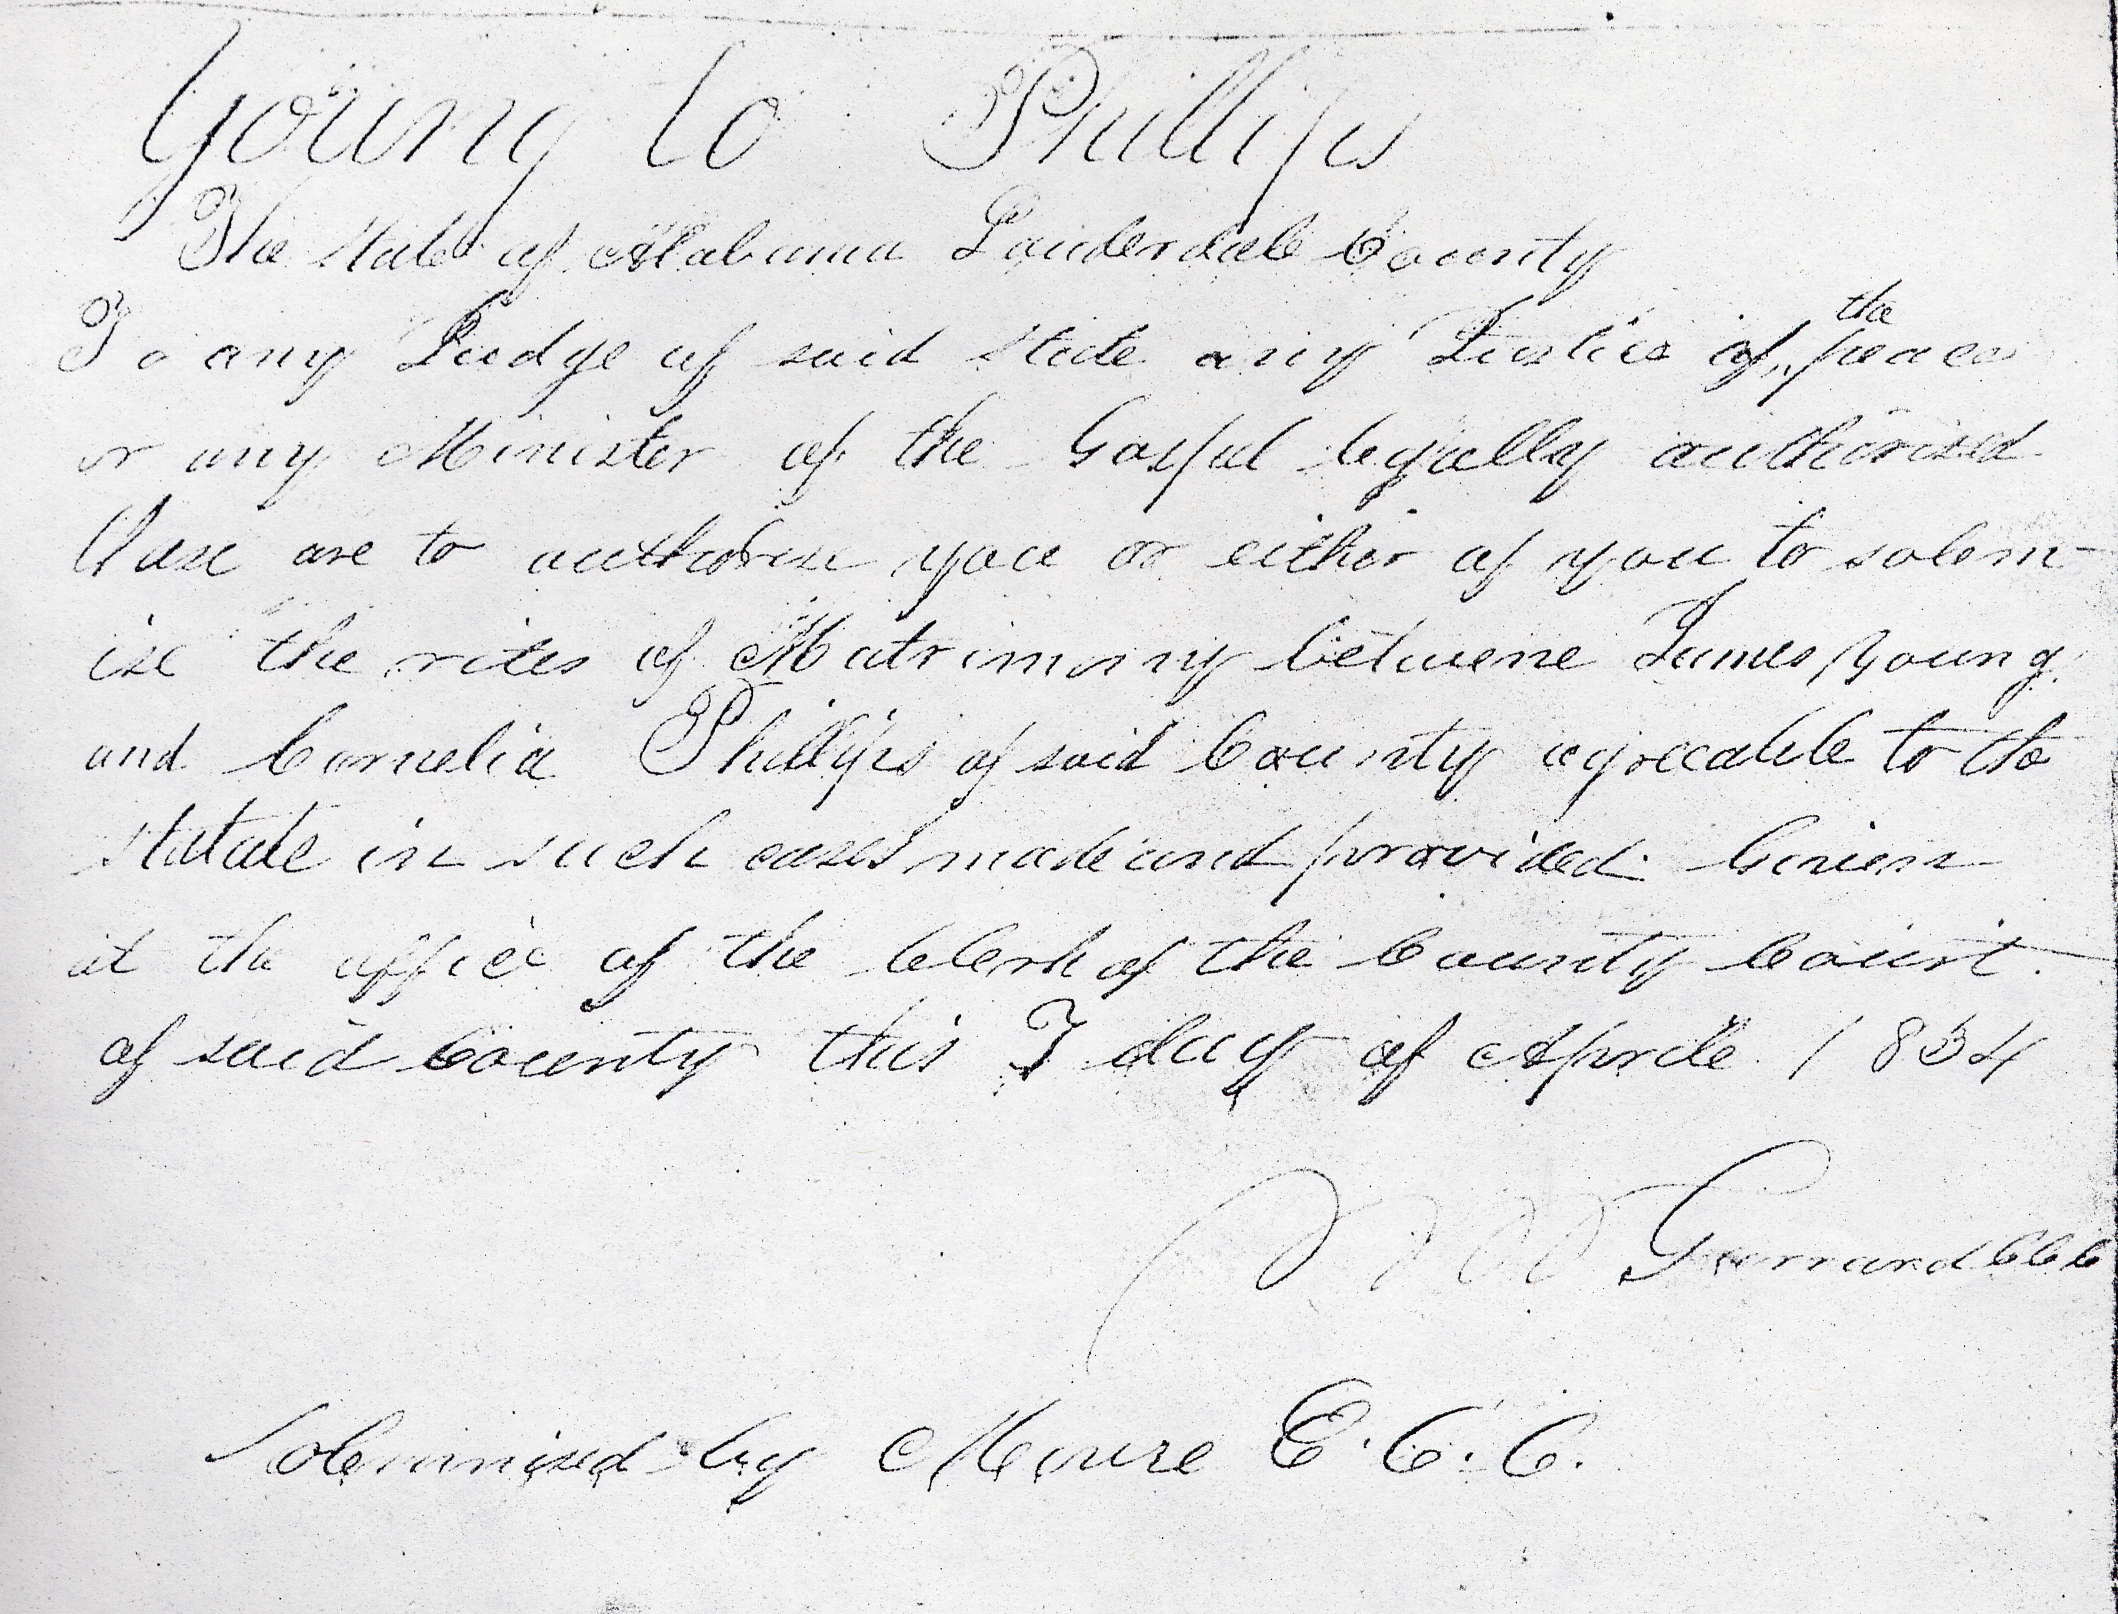 Young to Phillips
The State of Alabama Lauderdale County
To any Judge of said State any Justice of the peace
or any Minister of the Gospel legally authorised
These are to authorise you or either of you to solem-
ise the rites of Matrimony betwene James Young
and Cornelia Phillips of said County agreeable to the
statute in such cases made and provided. Given
at the office of the Clerk of the County Court.
of said County this 7 day of Aprile 1834
Garrard CCC
Solemnised by Moore E. C. C.